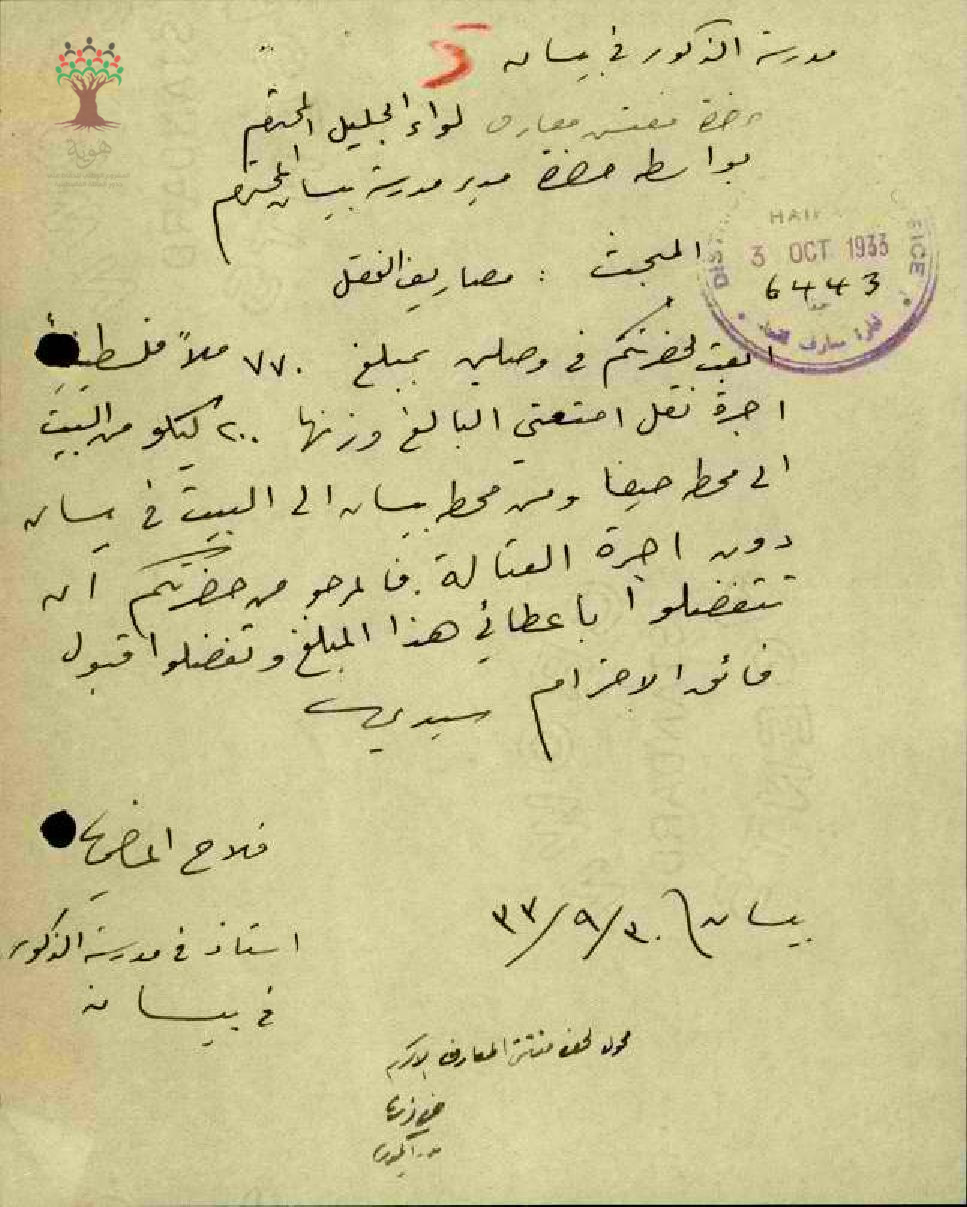 مدرسة الذكور في بيسان
حضرة مفتش معارف لواء الجليل المحترم
بواسطة حضرة مدير مدرسة بيسان المحترم
هوية
HAIFA
OFFICE
3 OCT 1933
6443
المبحث : مصاريف النقل
ابعث لحضرتكم في وصلين بمبلغ ٧٧٠ ملاً فلسطينياً
اجرة نقل امتعتي البالغ وزنها ٢٠٠ كيلو من البيت
الى محطة حيفا ومن محطة بيسان الى البيت في بيسان
دون اجرة العتالة . فالمرجو من حضرتكم أن
تتفضلوا باعطائي هذا المبلغ وتفضلوا قبول
فائق الاحترام سيدي
فلاح الماضي
استاذ في مدرسة الذكور
في بيسان
بيسان ٣٠/٩/٣٣
محول لحضرة مفتش المعارف الاكرم